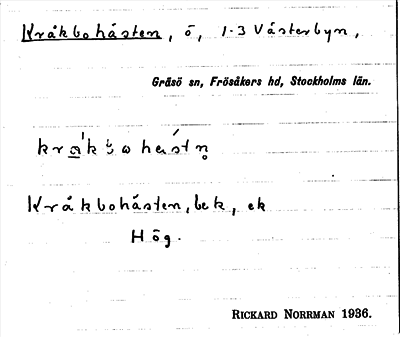 Kråkbohästen, ö, 1-3 Västerbyn,
Gräsö sn, Frösåkers hd, Stockholms län.
Kråkbohästen, bek, ek
Hög.
RICKARD NORRMAN 1936.